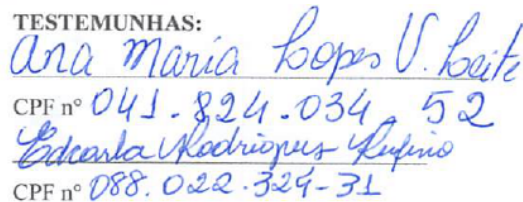 TESTEMUNHAS:
Ana Maria Lopes V. Leite
CPF nº 041.824.034 52
Edcarla Rodrigues Rufino
CPF nº 088.022.324-31